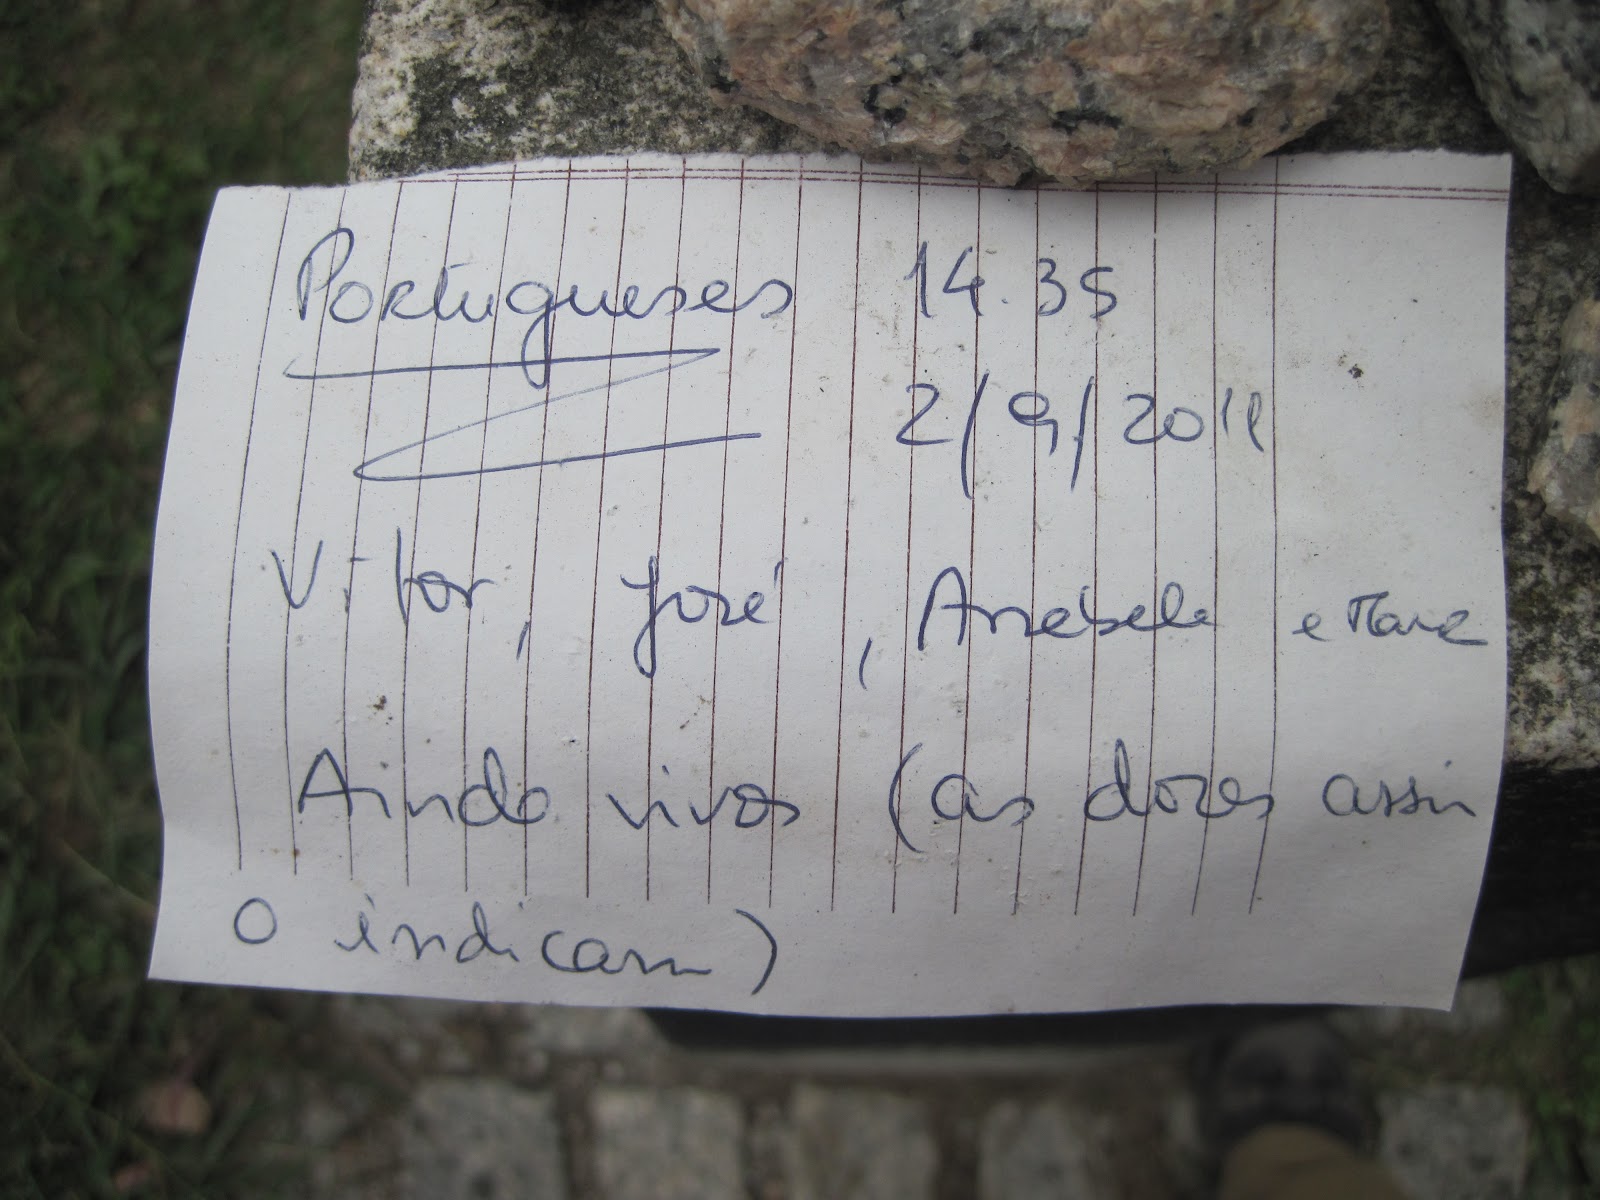 Portugueses 14.35
2/9/2011
Vitor, José, Anabela e
Ainda vivos (as dores assim
o indicam)